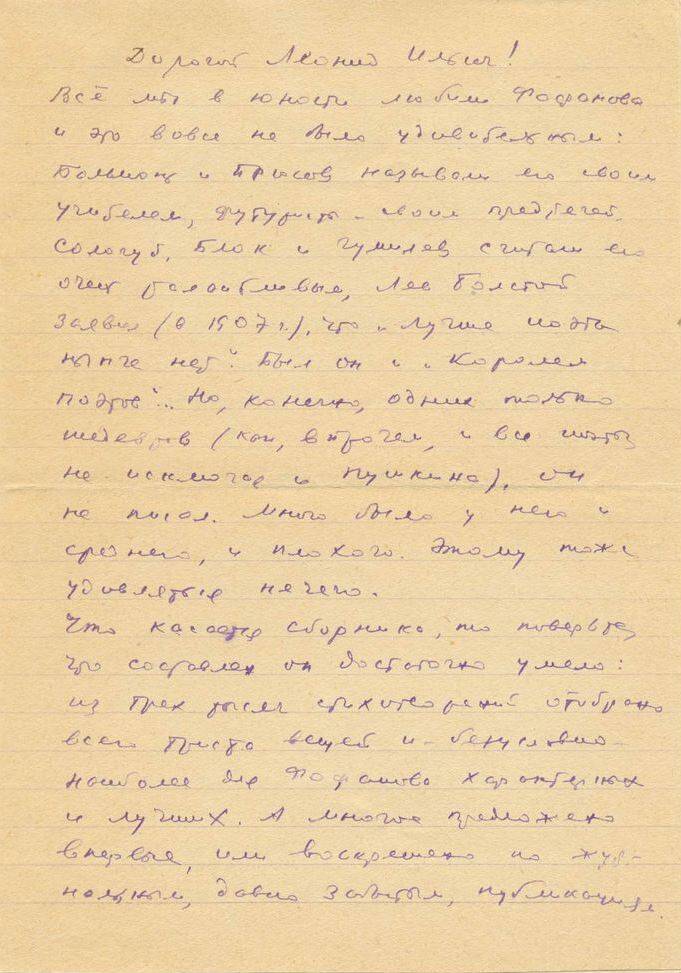 Дорогой Леонид Ильич!
Всё мы в юности любили Фофанова
и это вовсе не было удивительным:
Бальмонт и Брюсов называли его своим
учителем, футуристы - своим предтечей.
Сологуб, Блок и Гумилев считали его
очень талантливым, Лев Толстой
заявил (в 1907 г.), что "лучше поэта
нынче нет". Был он и "королем
поэтов"... Но, конечно, одних только
шедевров (как, впрочем, и все поэты
не исключая и Пушкина), он
не писал. Много было у него и
среднего, и плохого. Этому тоже
удивляться нечего.
Что касается сборника, то поверьте,
что составлен он достаточно умело:
из трех тысяч стихотворений отобрано
всего триста вещей и - безусловно -
наиболее для Фофанова характерных
и лучших. А многое предложено
впервые, или воскрешено по жур-
нальным, давно забытым, публикациям.